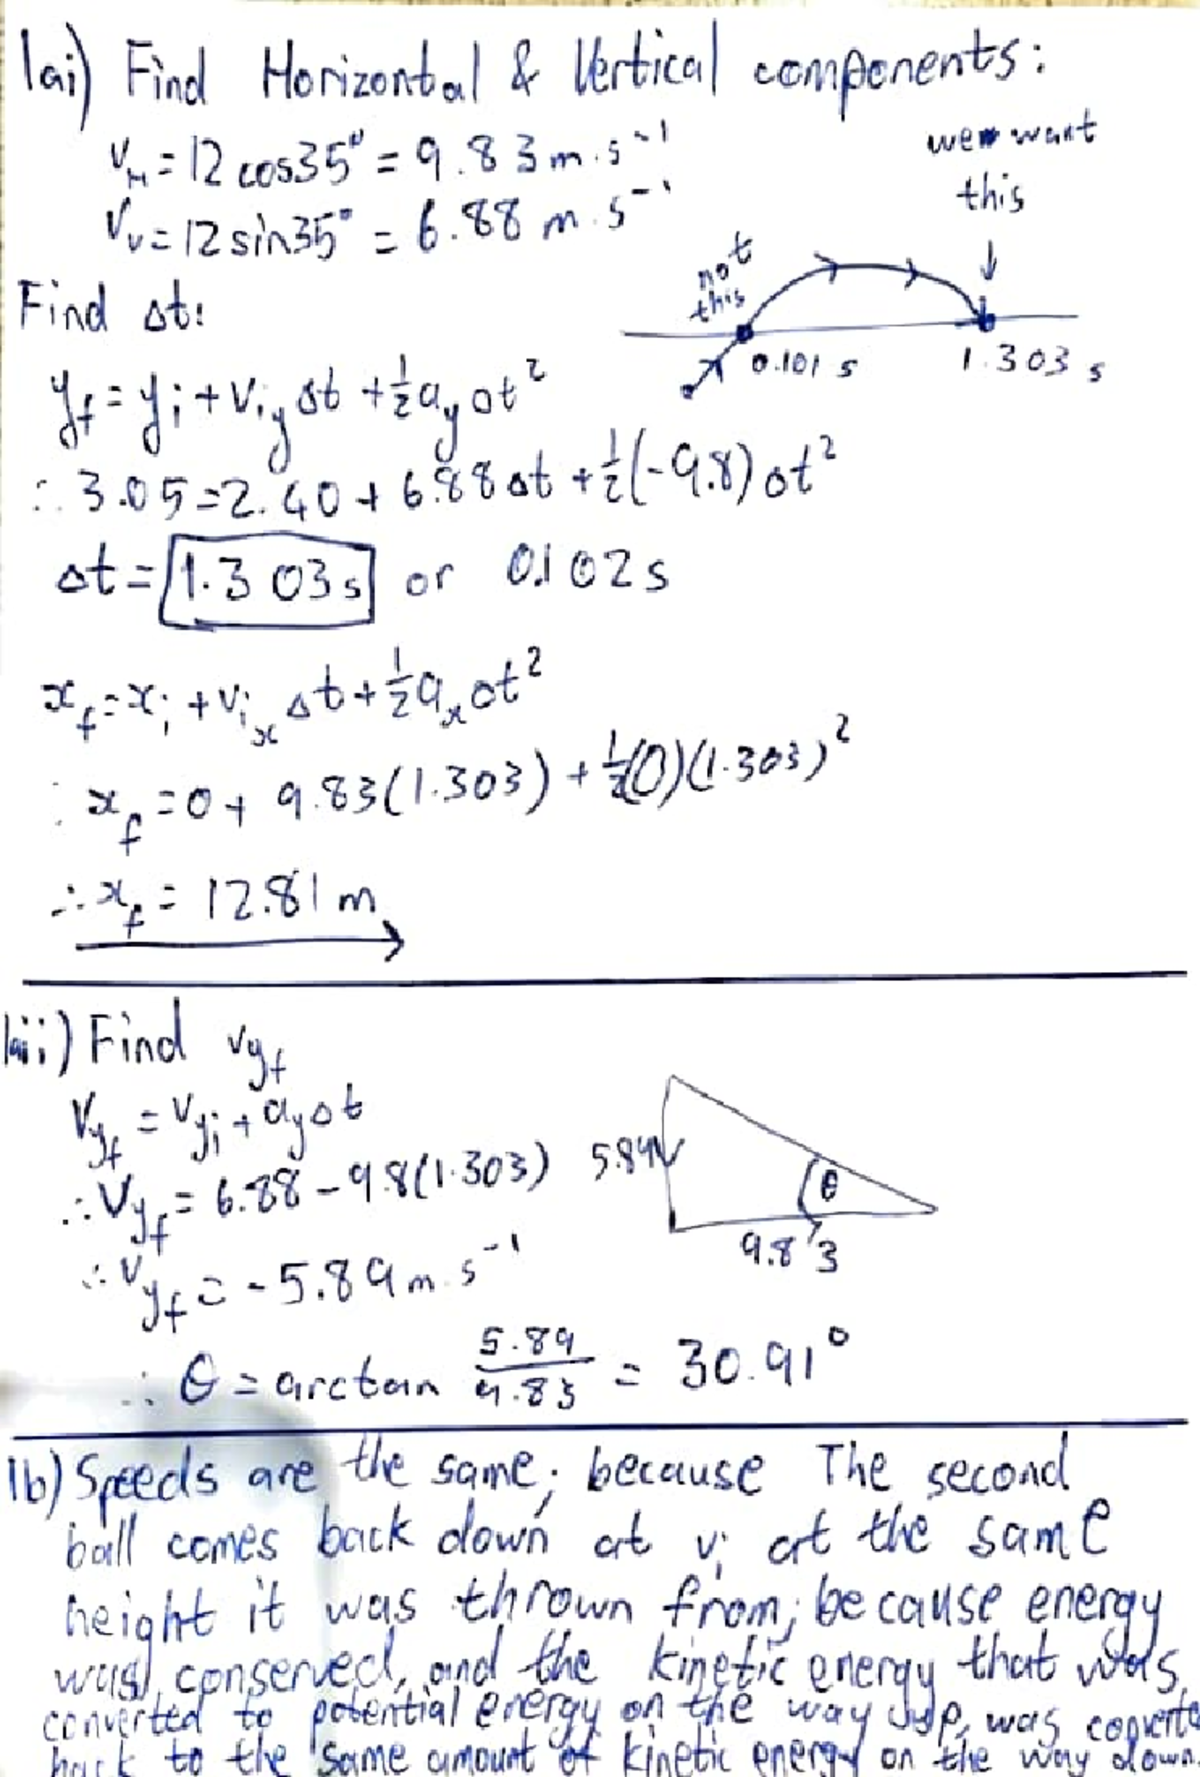 1ai) Find Horizontal & Vertical components:
v_H = 12 cos35° = 9.83 m.s⁻¹
v_v = 12 sin35° = 6.88 m.s⁻¹
we want
this
not
this
0.101 s
1.303 s
Find Δt:
y_f = y_i + v_iy Δt + ½a_y Δt²
∴ 3.05 = 2.40 + 6.88Δt + ½(-9.8)Δt²
Δt = 1.303s or 0.102s
x_f = x_i + v_ix Δt + ½a_x Δt²
∴ x_f = 0 + 9.83(1.303) + ½(0)(1.303)²
∴ x_f = 12.81 m
1aii) Find v_yf
v_yf = v_yi + a_y Δt
∴ v_yf = 6.88 - 9.8(1.303)
∴ v_yf = -5.89 m.s⁻¹
5.89
θ
9.83
∴ θ = arctan 5.89/9.83 = 30.91°
1b) Speeds are the same; because The second
ball comes back down at v_i at the same
height it was thrown from; because energy
was conserved, and the kinetic energy that was
converted to potential energy on the way up, was converte
back to the same amount of kinetic energy on the way down.